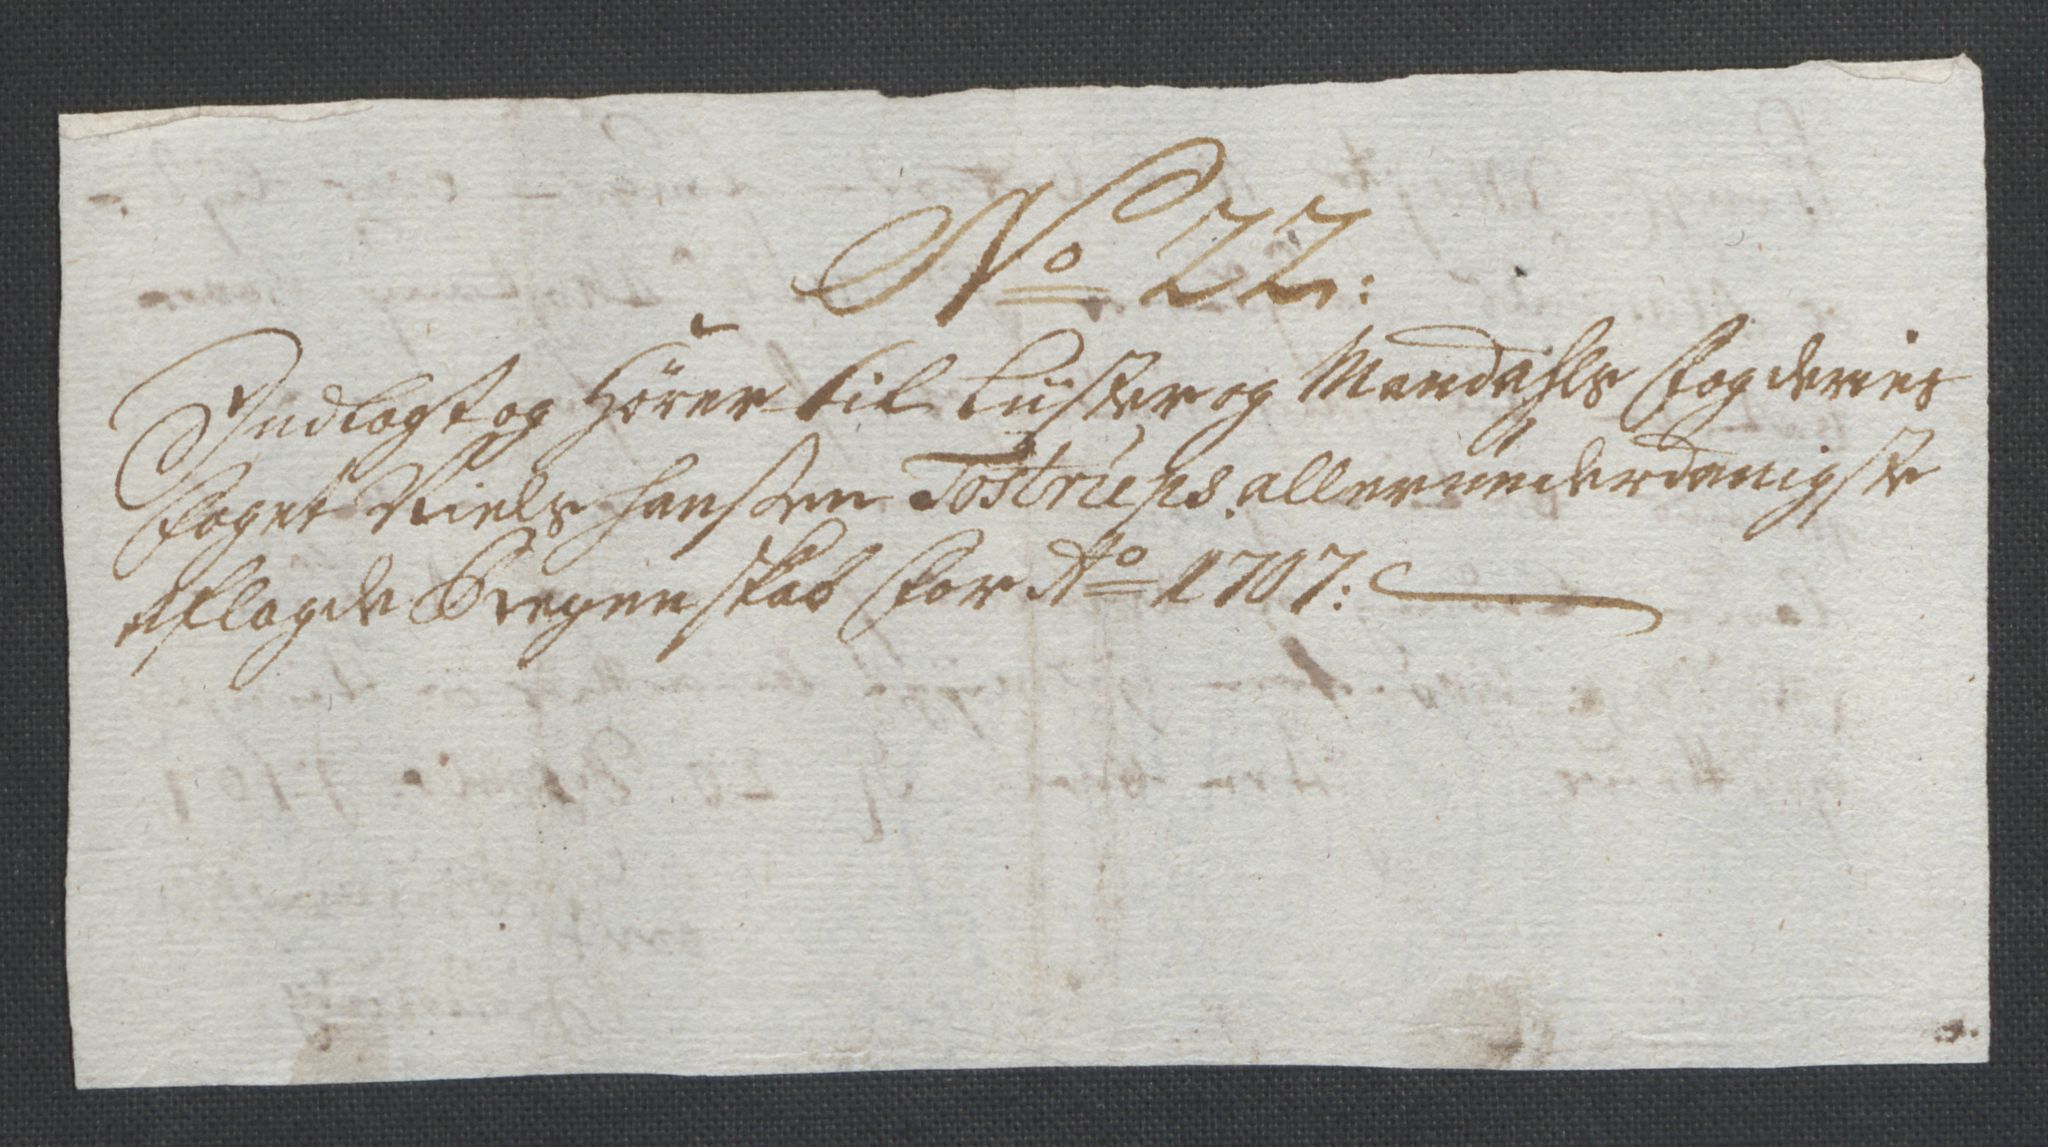 No 22:
Indlagt og Hörer til Lister og Mandahls Fogderies
Foget Niels Hanssen Tostrups allerunderdanigste
aflagde Regenskab for Ao 1707: